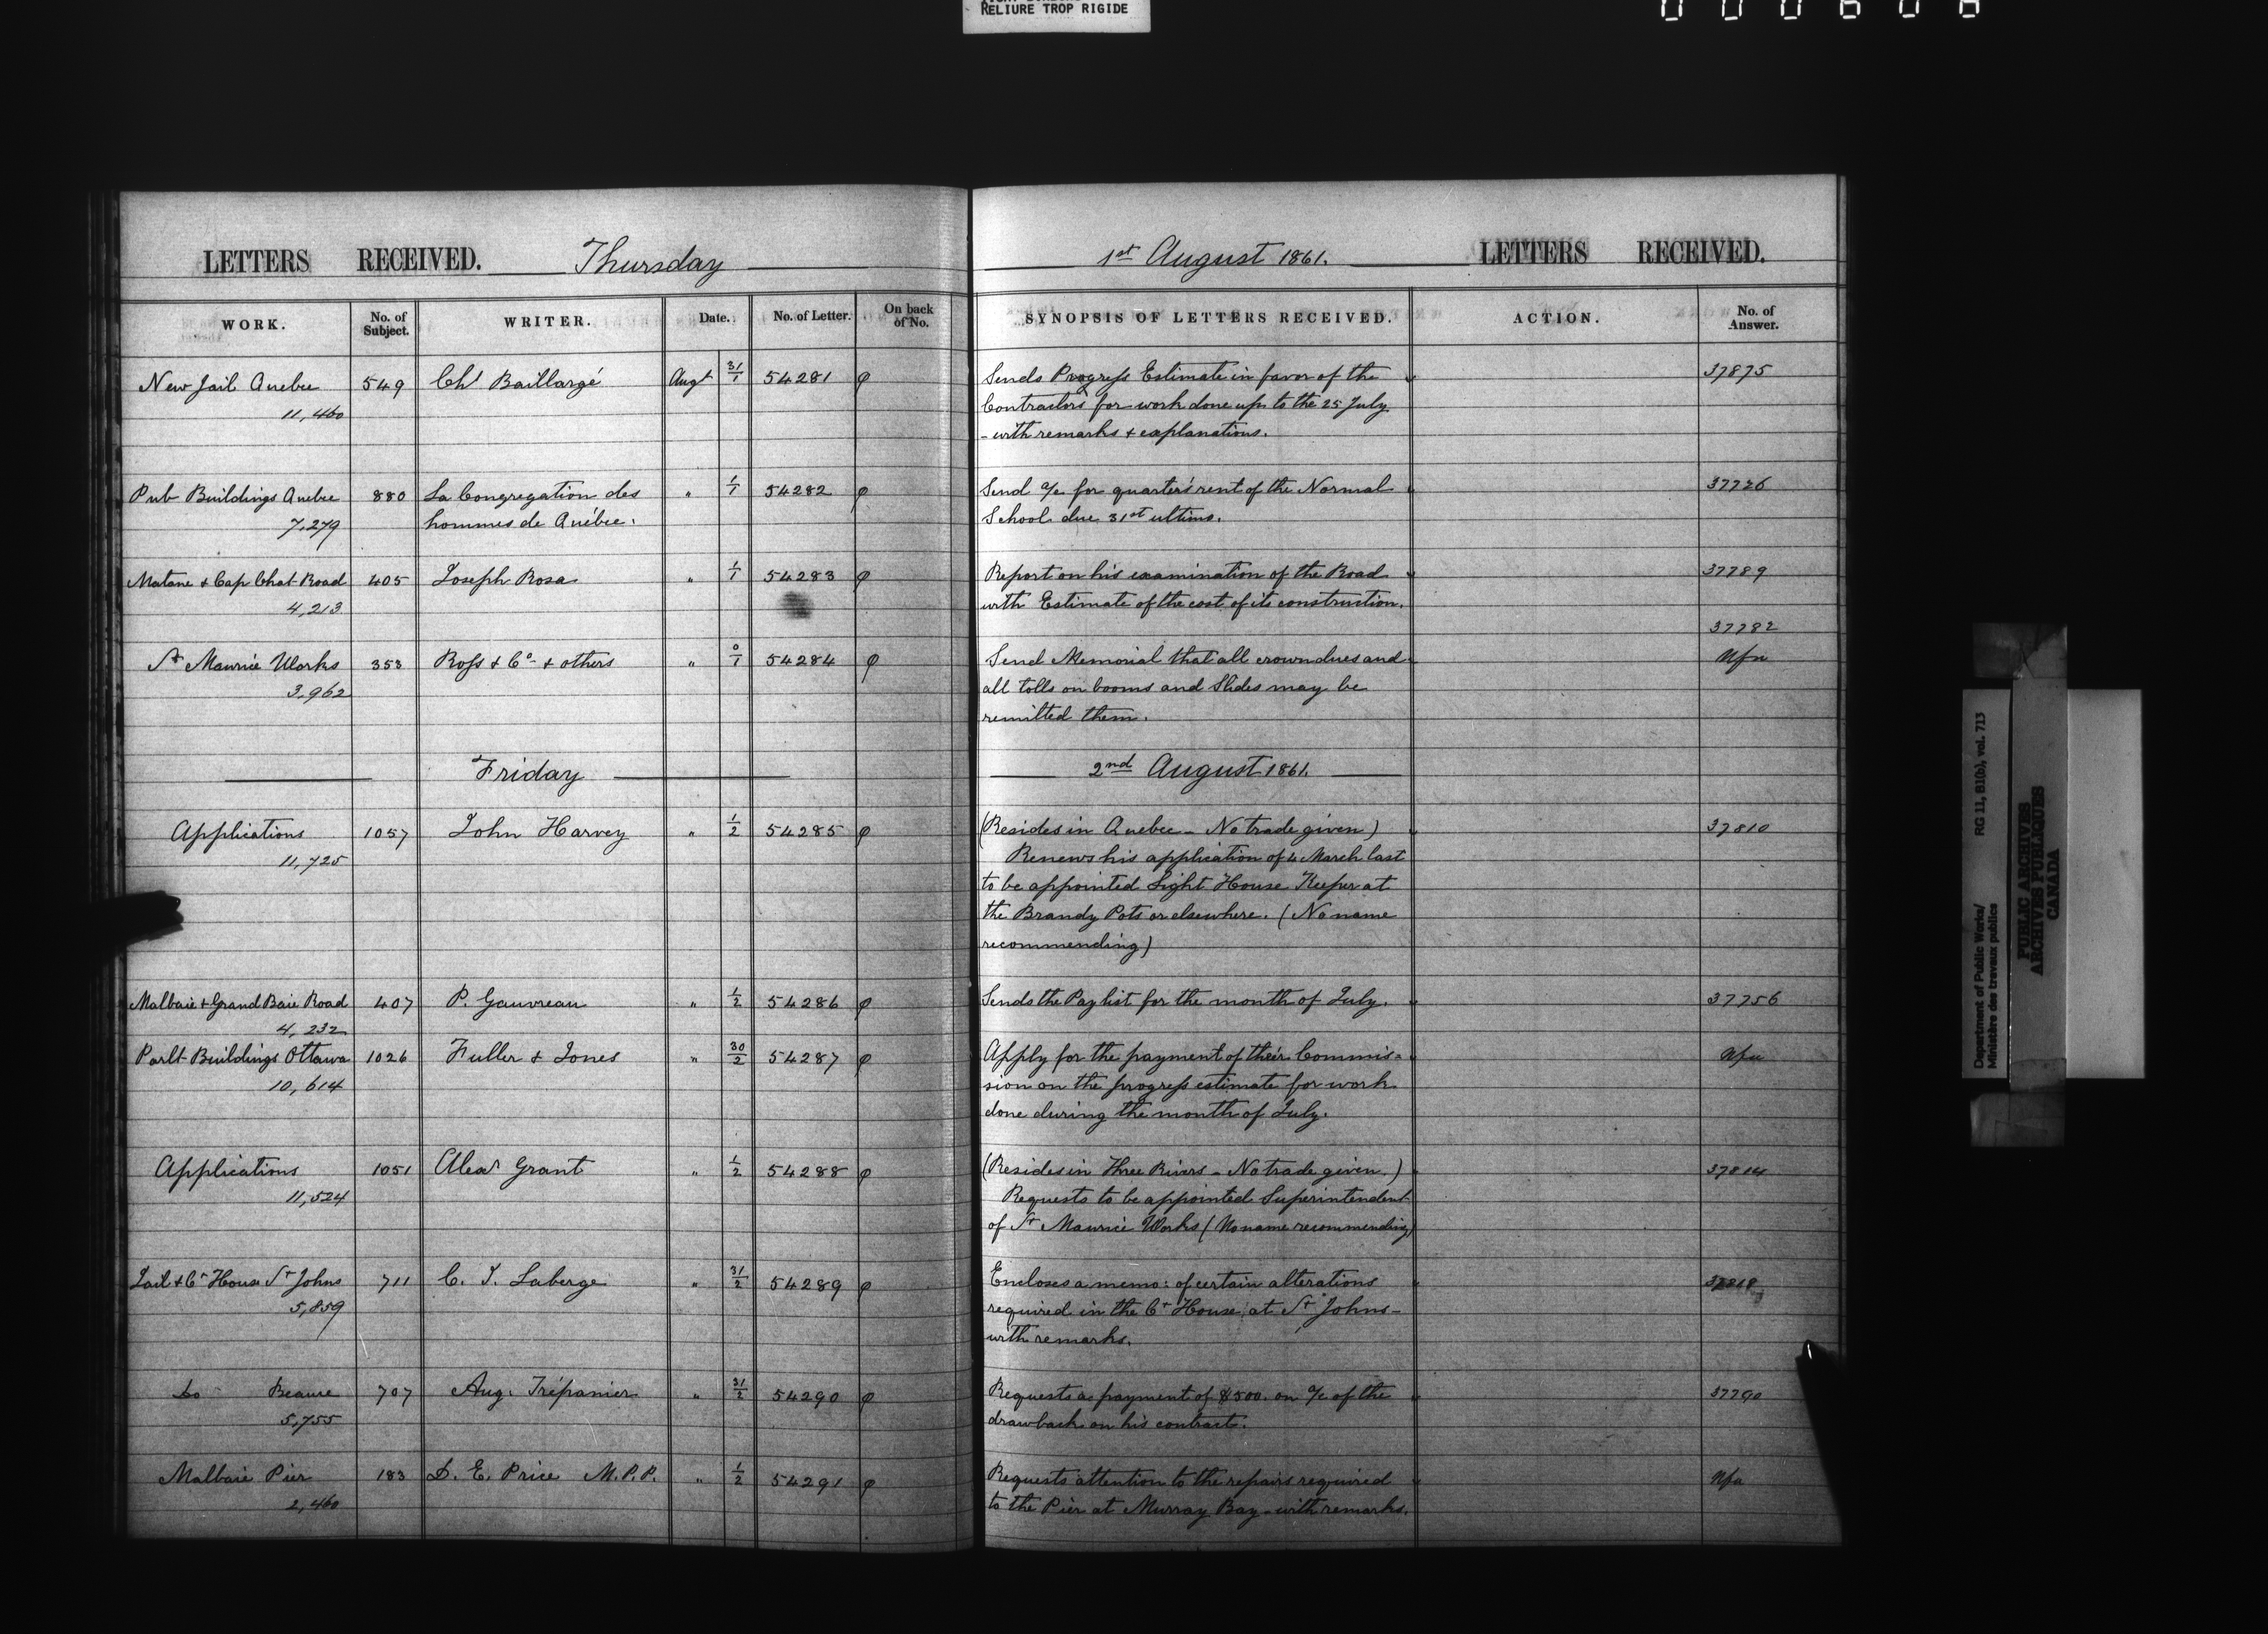 RELIURE TROP RIGIDE
LETTERS RECEIVED. Thursday
WORK. No. of Subject. WRITER. Date. No. of Letter. On back of No.
New Jail Quebec 549 Chs Baillargé Augt 31/1 54281 φ
11,460
Pub Buildings Quebec 880 La Congregation des " 1/1 54282 φ
7,279 hommes de Québec.
Matane & Cap Chat Road 405 Joseph Rosa " 1/1 54283 φ
4,213
St Maurice Works 353 Ross & Co & others " 0/1 54284 φ
3,962
Friday
Applications 1057 John Harvey " 1/2 54285 φ
11,725
Malbaie & Grand Baie Road 407 P. Gauvreau " 1/2 54286 φ
4,232
Parlt Buildings Ottawa 1026 Fuller & Jones " 30/2 54287 φ
10,614
Applications 1051 Alexr Grant " 1/2 54288 φ
11,524
Jail & Ct House St Johns 711 C. J. Laberge " 31/2 54289 φ
5,859
Do Beauce 707 Aug. Trépanier " 31/2 54290 φ
5,755
Malbaie Pier 183 D. E. Price M.P.P. " 1/2 54291 φ
2,460
1st August 1861. LETTERS RECEIVED.
SYNOPSIS OF LETTERS RECEIVED. ACTION. No. of Answer.
Sends Progress Estimate in favor of the 37875
Contractors for work done up to the 25 July
- with remarks & explanations.
Send a/c for quarter's rent of the Normal 37726
School due 31st ultimo.
Report on his examination of the Road 37789
with Estimate of the cost of its construction.
37782
Send Memorial that all crown dues and Nfa
all tolls on booms and Slides may be
remitted them.
2nd August 1861.
(Resides in Quebec - No trade given) 37810
Renews his application of 4 March last
to be appointed Light House Keeper at
the Brandy Pots or elsewhere. (No name
recommending)
Sends the Pay list for the month of July. 37756
Apply for the payment of their Commis= Nfa
sion on the progress estimate for work
done during the month of July.
(Resides in Three Rivers - No trade given.) 37814
Requests to be appointed Superintendent
of St Maurice Works (No name recommending)
Encloses a memo: of certain alterations 37818
required in the Ct House at St Johns -
with remarks.
Requests a payment of $500. on a/c of the 37790
drawback on his contract.
Requests attention to the repairs required Nfa
to the Pier at Murray Bay - with remarks.
Department of Public Works/ RG 11, B1(b), vol. 713
Ministère des travaux publics
PUBLIC ARCHIVES
ARCHIVES PUBLIQUES
CANADA